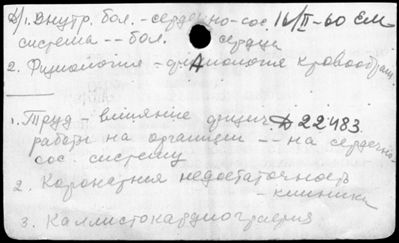 1. Внутр. бол. - сердечно-сос. 16/II-60 ЕМ
система -- бол. сердца
2. Физиология - физиология кровообращ.
1. Труд - влияние физич. Д 22483
работы на организм -- на сердечно-
сос. систему
2. Коронарная недостаточность
- клиника
3. Баллистокардиография